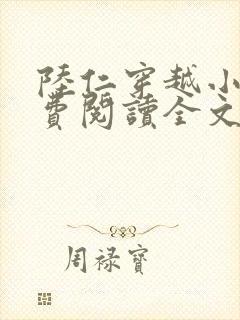 陸仁穿越小
費閱讀全文
周祿寶